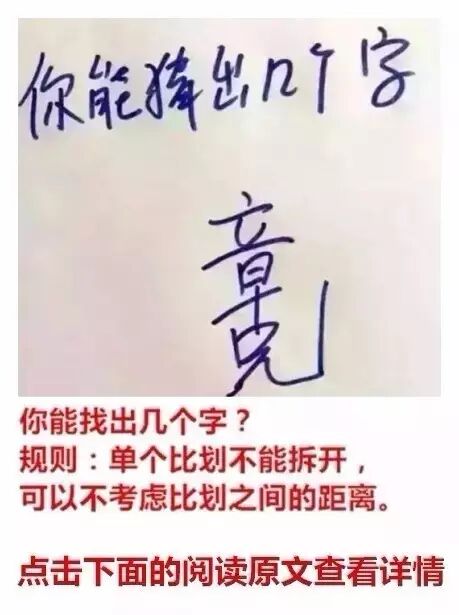 你能猜出几个字
你能找出几个字？
规则：单个比划不能拆开，
可以不考虑比划之间的距离。
点击下面的阅读原文查看详情